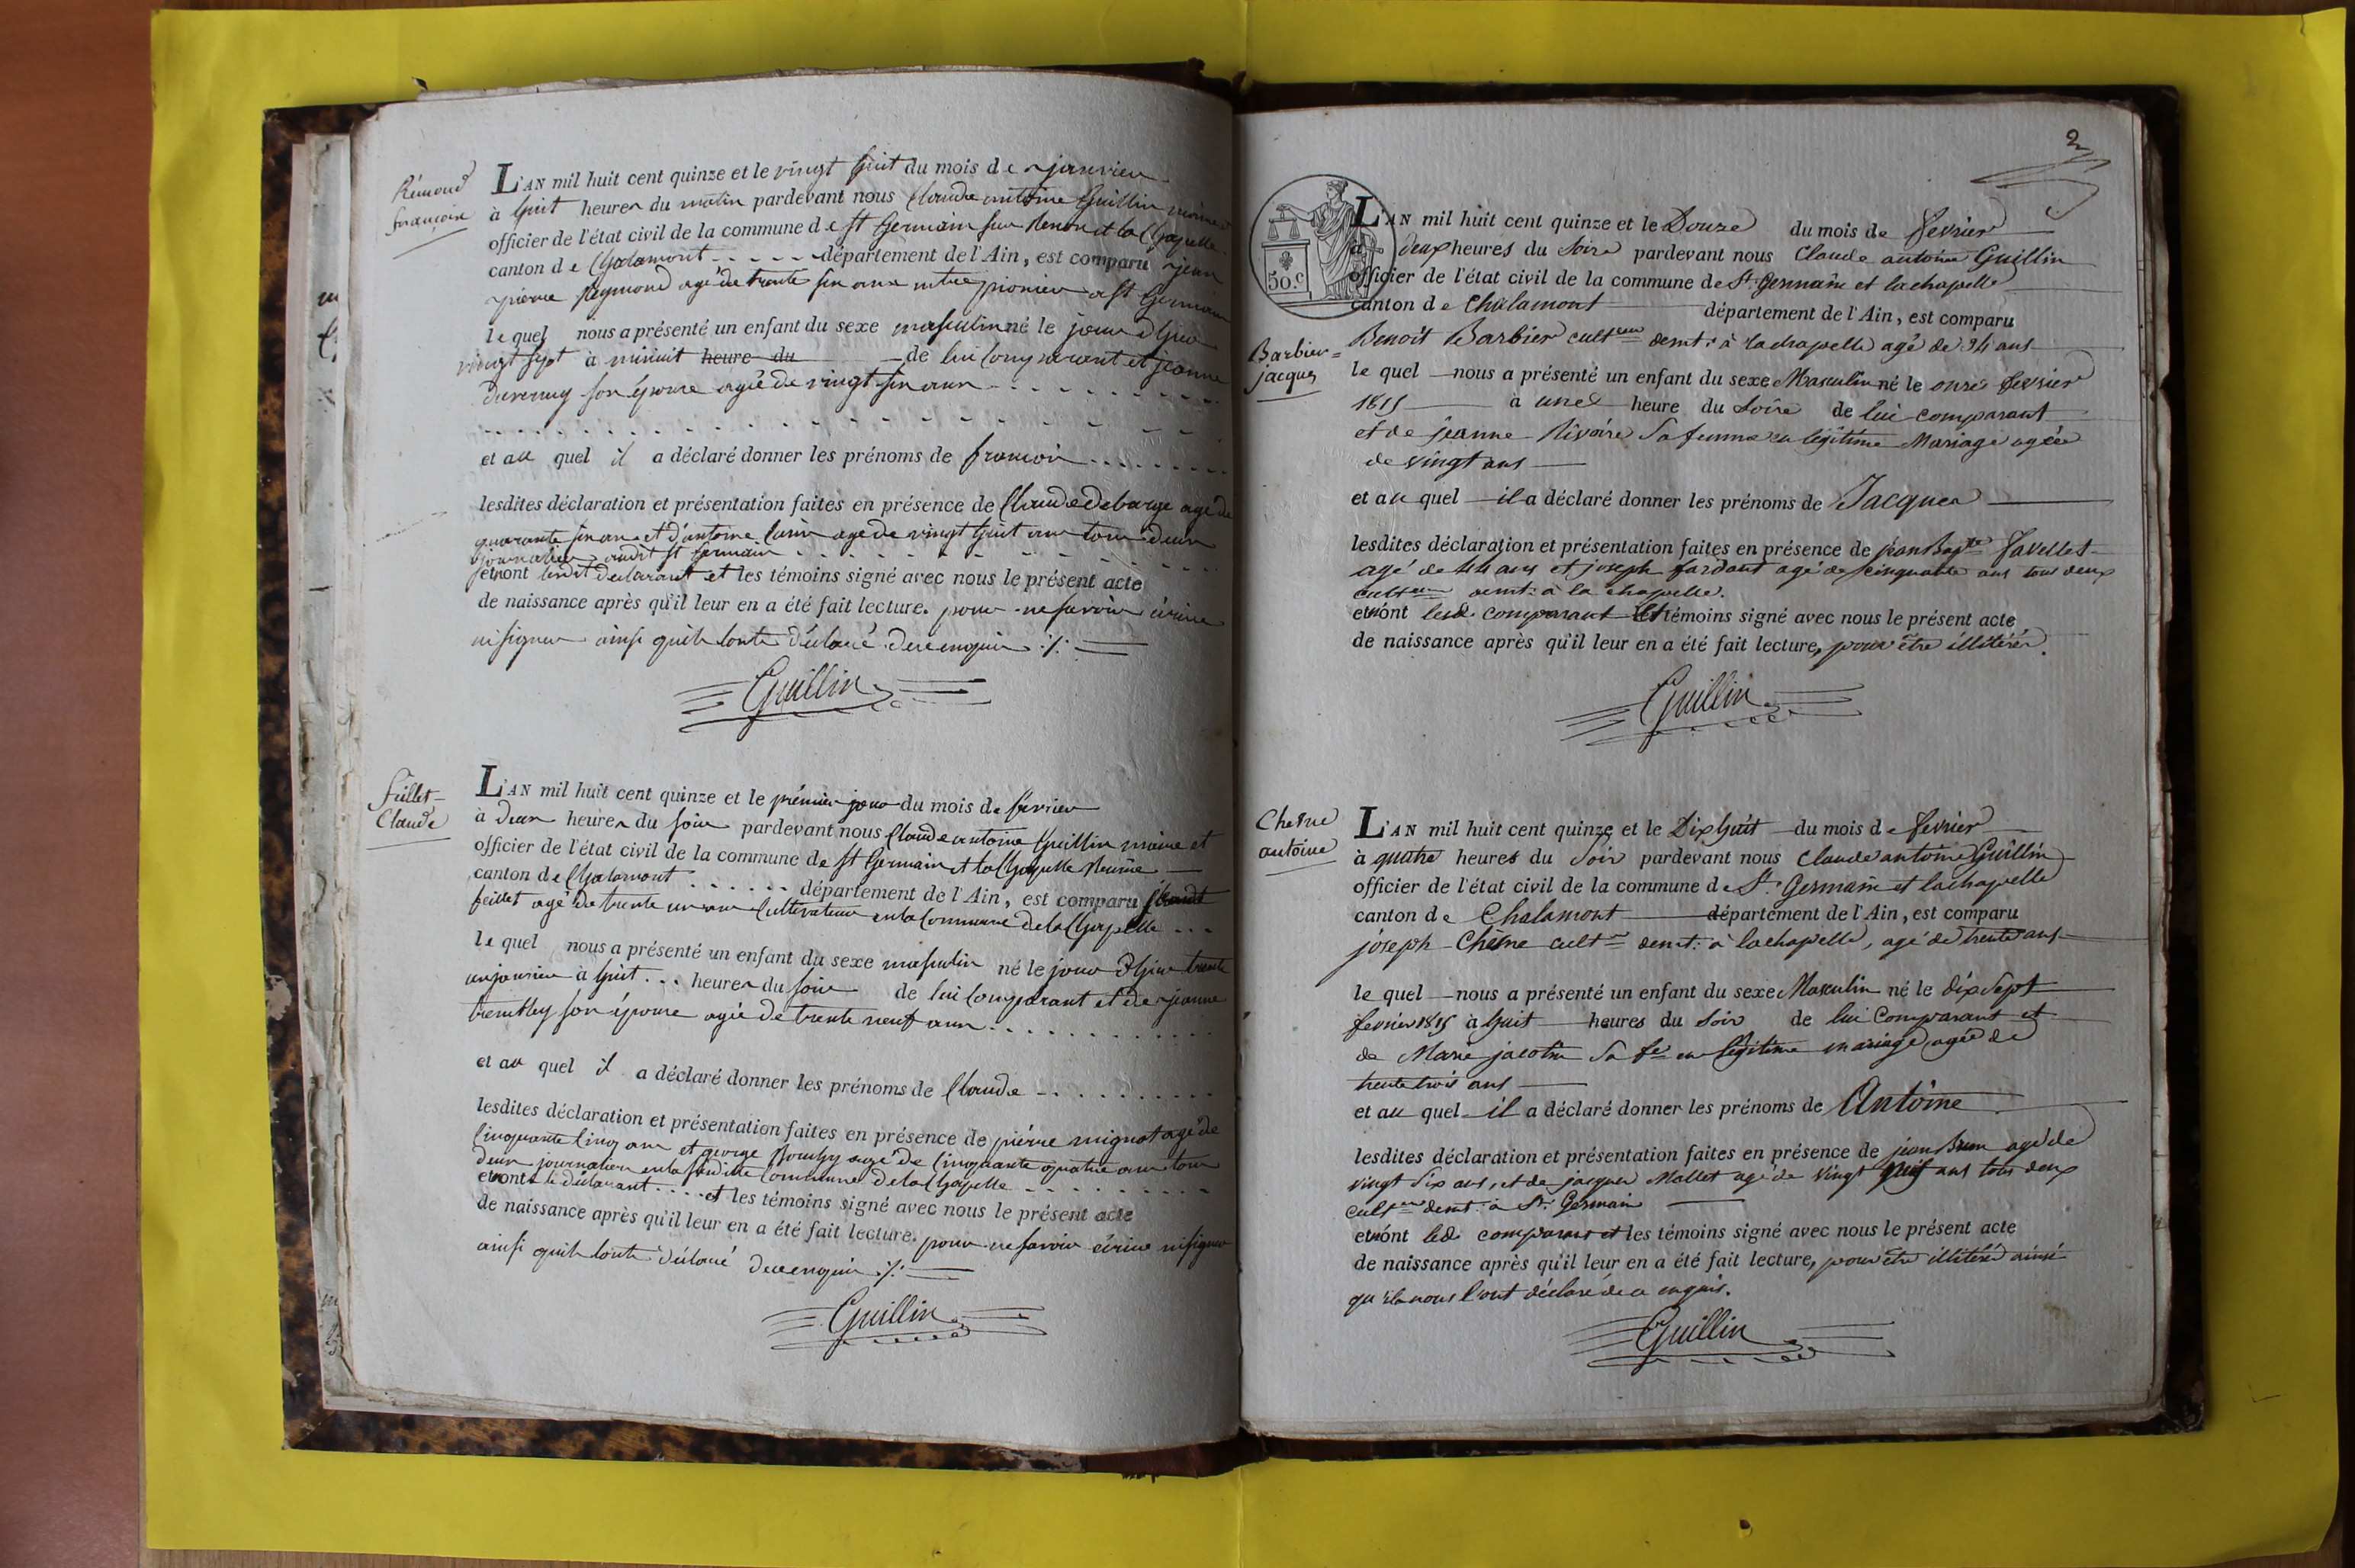 Rémond
françois
L'AN mil huit cent quinze et le vingt huit du mois de janvier
à huit heures du matin pardevant nous Claude antoine Guillin maire et
officier de l'état civil de la commune de st Germain sur Renon et la Chapelle
canton de Chalamont département de l'Ain, est comparu jean
pierre Reymond agé de trente six ans pionier a st Germain
le quel nous a présenté un enfant du sexe masculin né le jour d'hier
vingt sept à minuit heure du de lui comparant et jeanne
son épouse agée de vingt six ans
et au quel il a déclaré donner les prénoms de françois
lesdites déclaration et présentation faites en présence de Claude Debarge agé de
quarante six ans et d'antoine agé de vingt huit ans tous deux
journaliers audit st Germain
et n'ont ledit declarant et les témoins signé avec nous le présent acte
de naissance après qu'il leur en a été fait lecture. pour ne savoir écrire
ni signer ainsi quils l'ont déclaré de ce enquis ./.
Guillin
feillet
Claude
L'AN mil huit cent quinze et le prémier jour du mois de février
à deux heures du soir pardevant nous Claude antoine Guillin maire et
officier de l'état civil de la commune de st Germain et la Chapelle réunie
canton de Chalamont département de l'Ain, est comparu
feillet agé de trente un ans Cultivateur en la Commune de la Chapelle
le quel nous a présenté un enfant du sexe masculin né le jour d'hier trente
un janvier à huit heures du soir de lui Comparant et de jeanne
trembley son épouse agée de trente neuf ans
et au quel il a déclaré donner les prénoms de Claude
lesdites déclaration et présentation faites en présence de piérre mignot agé de
Cinquante Cinq ans et george agé de Cinquante quatre ans tous
deux journaliers en la susditte Commune de la Chapelle
et n'ont le déclarant et les témoins signé avec nous le présent acte
de naissance après qu'il leur en a été fait lecture. pour ne savoir écrire ni signer
ainsi quils l'ont déclaré de ce enquis ./.
Guillin
2
50.c
L'AN mil huit cent quinze et le Douze du mois de fevrier
à deux heures du Soire pardevant nous Claude antoine Guillin
officier de l'état civil de la commune de St. Germain et lachapelle
canton de Chalamont département de l'Ain, est comparu
Barbier
jacques
Benoit Barbier cult.eur demt. à lachapelle agé de 34 ans
le quel nous a présenté un enfant du sexe Masculin né le onze fevrier
1815 à une heure du Soire de lui comparant
et de jeanne Rivoire Sa femme en légitime Mariage agée
de vingt ans
et au quel il a déclaré donner les prénoms de Jacques
lesdites déclaration et présentation faites en présence de jean Bapte. Javellet
agé de 44 ans et joseph fardout agé de cinquante ans tous deux
culteurs demt. à la chapelle.
et n'ont lesd. comparant et témoins signé avec nous le présent acte
de naissance après qu'il leur en a été fait lecture, pour être illitéré.
Guillin
Chesne
antoine
L'AN mil huit cent quinze et le Dix huit du mois de fevrier
à quatre heures du Soir pardevant nous Claude antoine Guillin
officier de l'état civil de la commune de St. Germain et lachapelle
canton de Chalamont département de l'Ain, est comparu
joseph Chêsne cult.r demt. à lachapelle, agé de trente ans
le quel nous a présenté un enfant du sexe Masculin né le dix Sept
fevrier 1815 à huit heures du Soir de lui Comparant et
de Marie jacolin Sa fe. en légitime mariage agée de
trente trois ans
et au quel il a déclaré donner les prénoms de Antoine
lesdites déclaration et présentation faites en présence de jean Brun agé de
vingt Six ans, et de jacques Mallet agé de vingt huit ans tous deux
culteurs demt. à St. Germain
et n'ont led. comparant et les témoins signé avec nous le présent acte
de naissance après qu'il leur en a été fait lecture, pour être illitéré ainsi
qu'ils nous l'ont déclaré de ce enquis.
Guillin